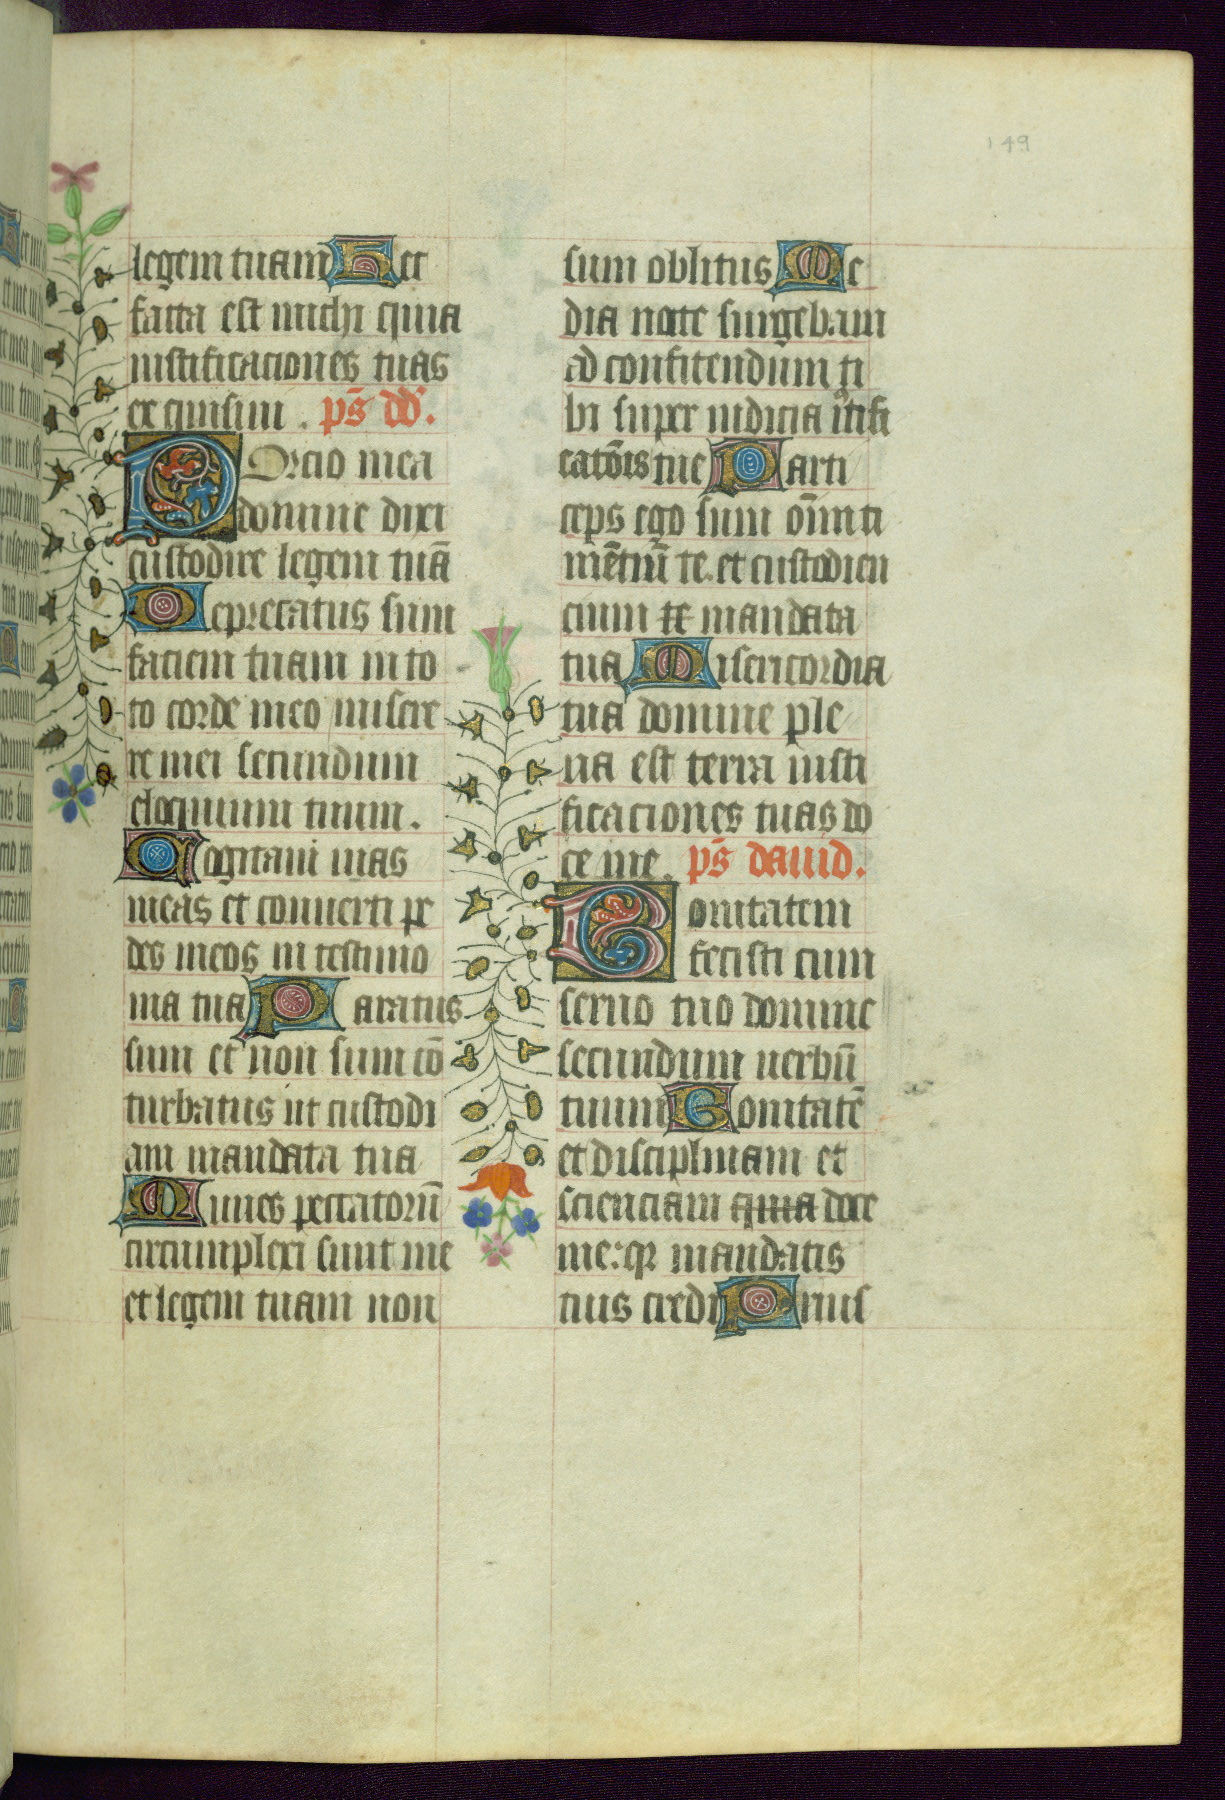 149
legem tuam Hec
facta est michi quia
iustificaciones tuas
exquisiui. ps̄ dd̄.
Porcio mea
domine dixi
custodire legem tuā
Deprecatus sum
faciem tuam in to
to corde meo misere
re mei secundum
eloquium tuum.
Cogitaui uias
meas et conuerti pe
des meos in testimo
nia tua Paratus
sum et non sum cō
turbatus ut custodi
am mandata tua
Funes peccatorū
circumplexi sunt me
et legem tuam non
sum oblitus Me
dia nocte surgebam
ad confitendum ti
bi super iudicia iustifi
catōis tue Parti
ceps ego sum oīm ti
mētiū te. et custodien
cium te mandata
tua Misericordia
tua domine ple
na est terra iusti
ficaciones tuas do
ce me. ps̄ dauid.
Bonitatem
fecisti cum
seruo tuo domine
secundum uerbū
tuum Bonitatē
et disciplinam et
scienciam quia doce
me: qr mandatis
tuis credi Prius